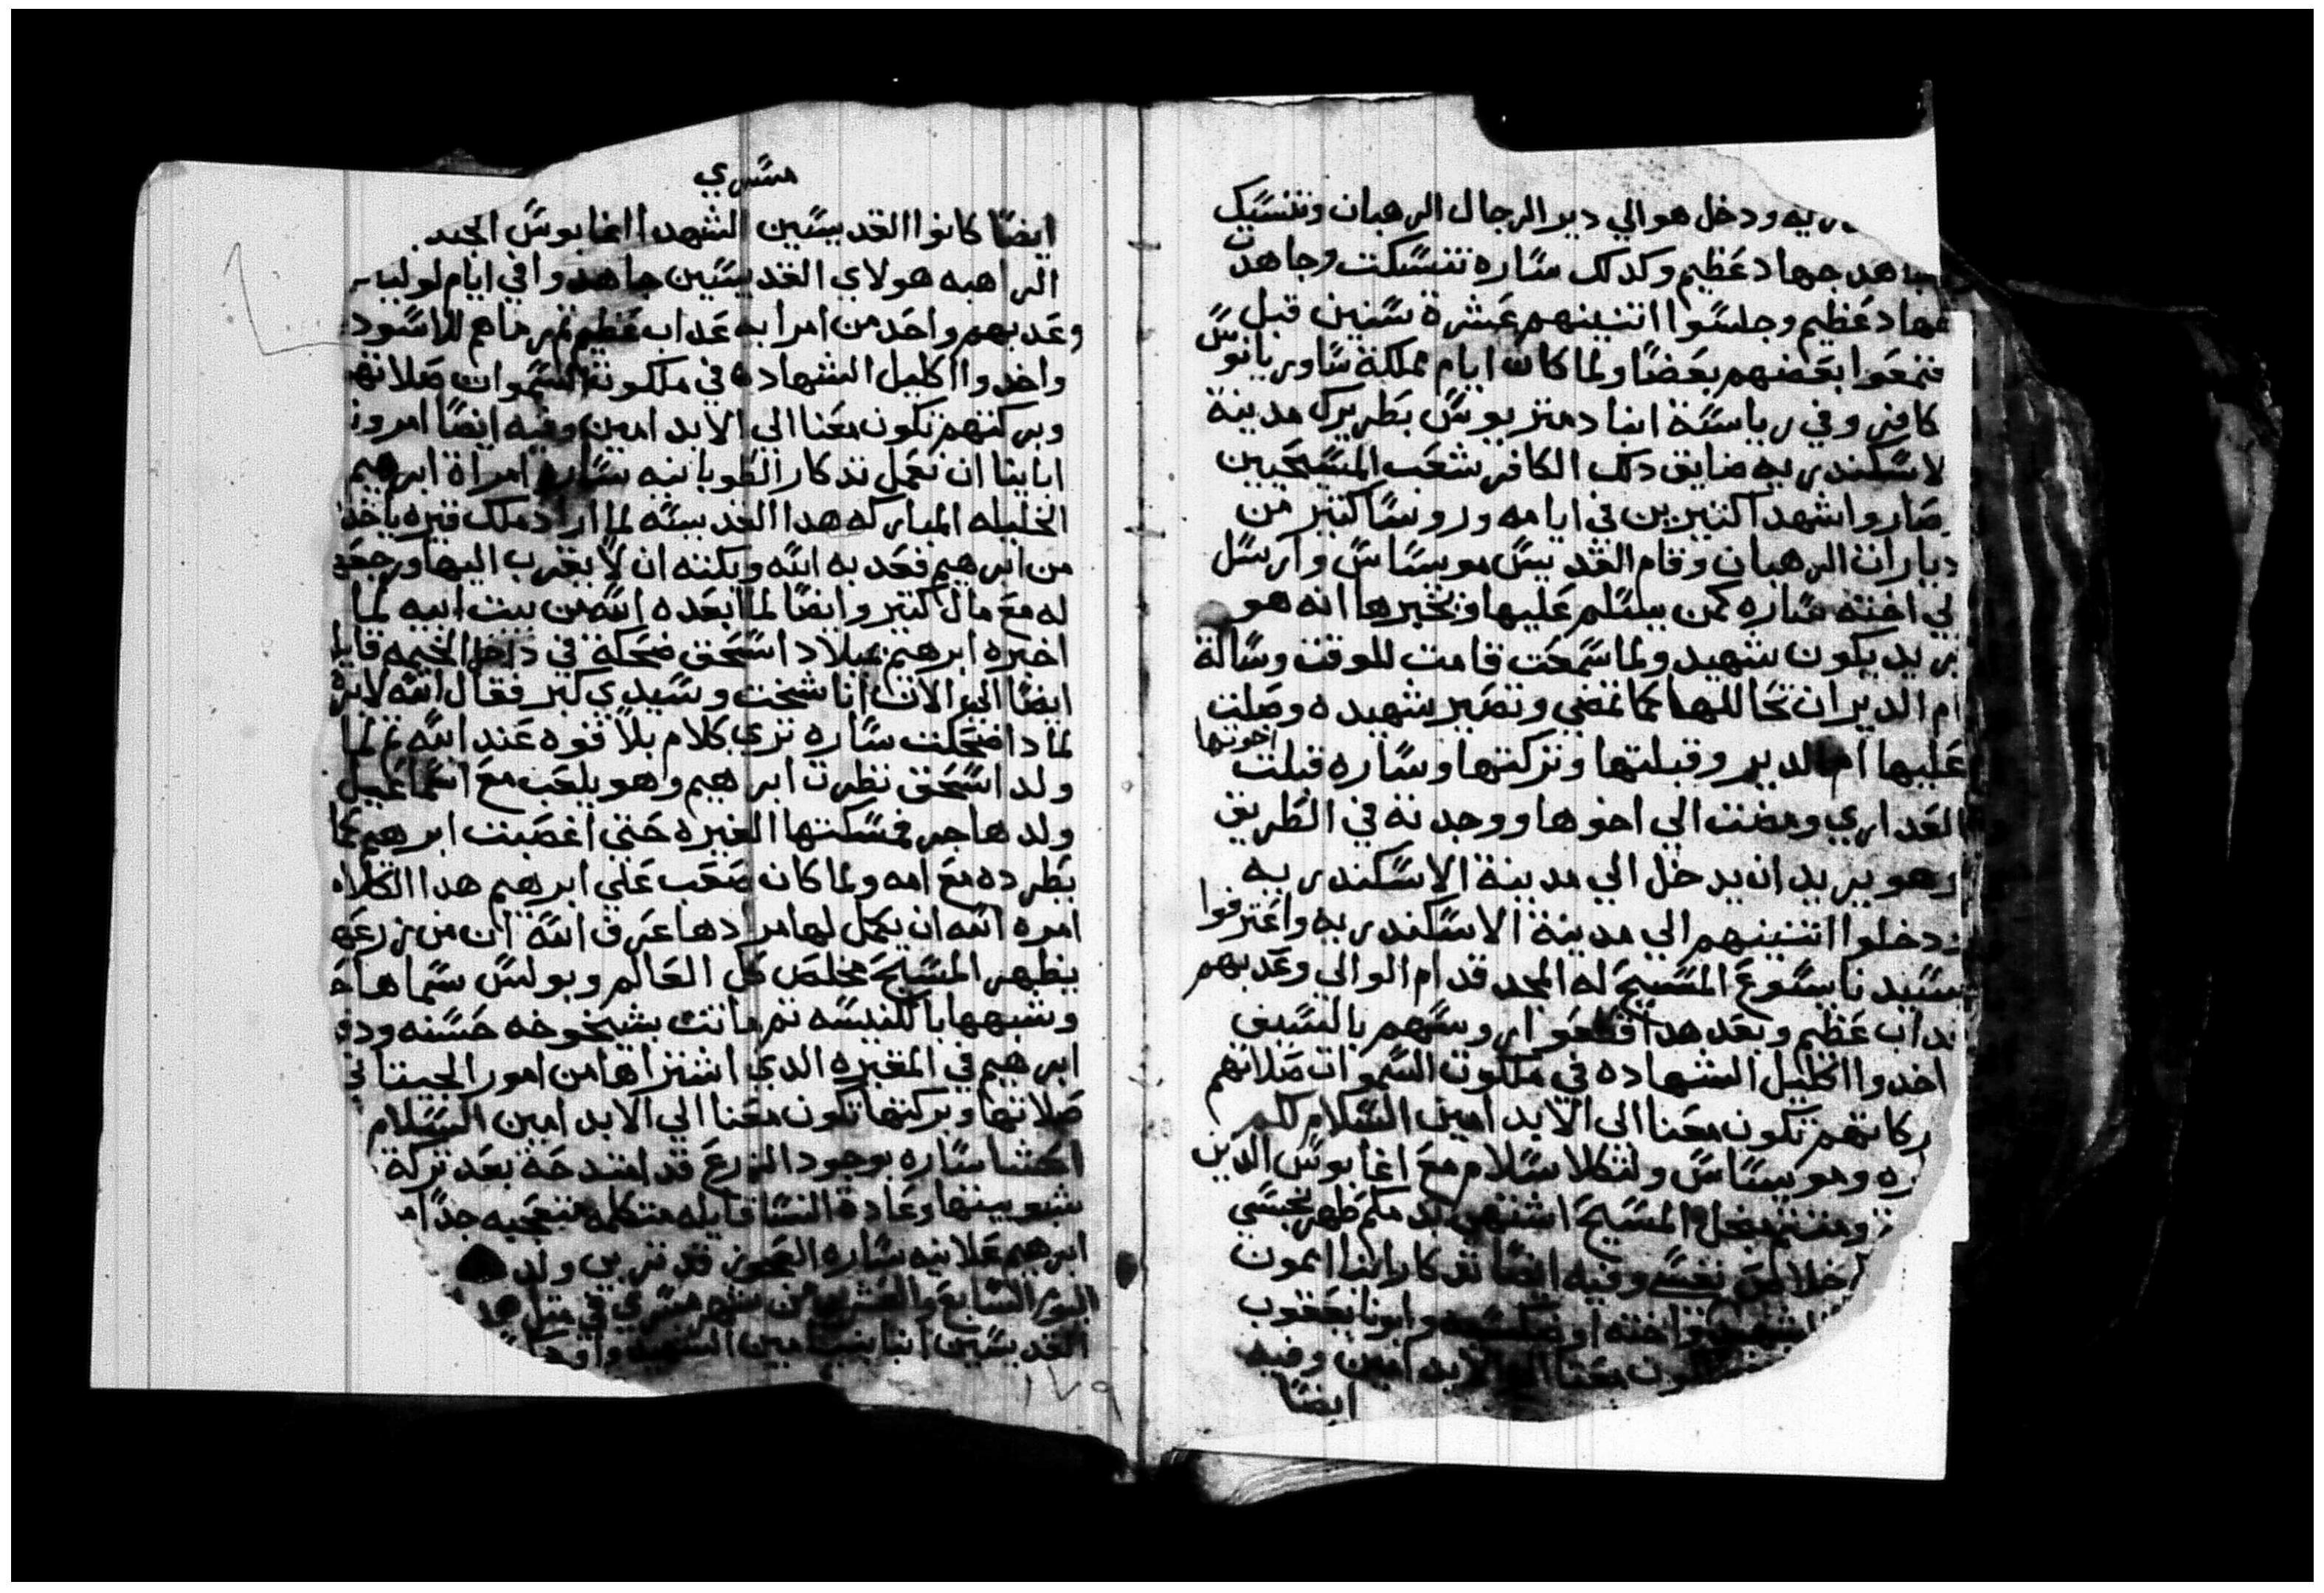 ريه ودخل هو الي دير الرجال الرهبان وتنسك
جاهد جهاد عظيم وكدلك ساره تنسكت وجاهدت
جهاد عظيم وجلسوا اتنينهم عشرة سنين قبل
بعضهم بعضا ولما كان ايام مملكة ساوريانوس
كافر وفي رياسة انبا دمتريوس بطريرك مدينة
لاسكندريه ضايق دلك الكافر شعب المسيحيين
صاروا شهدا كتيرين في ايامه وروسا كتير من
ديارات الرهبان وقام القديس مويساس وارسل
لي اخته ساره لمن يسلم عليها ويخبرها انه هو
يريد يكون شهيد ولما سمعت قامت للوقت وسالة
ام الدير ان تحاللها كما تمضي وتصير شهيده وصلت
عليها ام الدير وقبلتها وتركتها وساره قبلت اخوتها
العداري ومضت الي اخوها ووجدته في الطريق
وهو يريد ان يدخل الي مدينة الاسكندريه
ودخلوا اتنينهم الي مدينة الاسكندريه واعترفوا
بسيدنا يسوع المسيح له المجد قدام الوالي وعدبهم
عداب عظيم وبعد هدا قطعوا روسهم بالسيف
اخدوا اكليل الشهاده في ملكوت السموات صلاتهم
ركاتهم تكون معنا الى الابد امين السلام لكم
ره ومويساس ولتكلا سلام مع اغابوس الدين
من اجل المسيح اشتهي
خلاص نفسي وفيه ايضا تدكار ابننا ايمون
الشهيد واخته وابونا يعقوب
تكون معنا الي الابد امين وفيه
ايضا
مسري
ايضا كانوا القديسين الشهدا اغابوس الجند
الراهبه هولاي القديسين جاهدوا في ايام لولي
وعدبهم واحد من امرايه عداب عظيم تم رماهم للاسود
واخدوا اكليل الشهاده في ملكوت السموات صلاتهم
وبركتهم تكون معنا الي الابد امين وفيه ايضا امرونا
اباينا ان نعمل تدكار الطوبانيه ساره امراة ابرهيم
الخليله المباركه هدا القديسه لما اراد ملك فيره ياخد
من ابرهيم فعدبه الله وبكته ان لا يقرب اليها ورجعها
له مع مال كتير وايضا لما ابعده الله من بيت ابيه لما
اخبره ابرهيم بميلاد اسحق ضحكة في داخل الخيمه قايله
ايضا الي الان انا شخت وسيدي كبر فقال الله لابرهيم
لمادا ضحكت ساره تري كلام بلا قوه عند الله تم لما
ولد اسحق نظرت ابرهيم وهو يلعب مع اسماعيل
ولد هاجر فمسكتها الغيره حتي اغصبت ابرهيم كما
يطرده مع امه ولما كان صعب علي ابرهيم هدا الكلام
امره الله ان يكمل لها مرادها عرف الله ان من زرعها
يظهر المسيح مخلص كل العالم وبولس سماها ح
وشبهها بالكنيسه تم ماتت بشيخوخه حسنه ودف
ابرهيم في المقبره الدي اشتراها من امور الحيتاني
صلاتها وبركتها تكون معنا الي الابد امين السلام
احشا ساره بوجود الزرع قد امتدحة بعد تركة
شبوبيتها وعادة النسا قايله متكلمه متعجبه جدا
ابرهيم علانيه ساره العجوز قد ترين ولد
اليوم السابع والعشرين من شهر مسري في متل هد
القديسين انبا بنيامين الشهيد واودكا
١٧٩